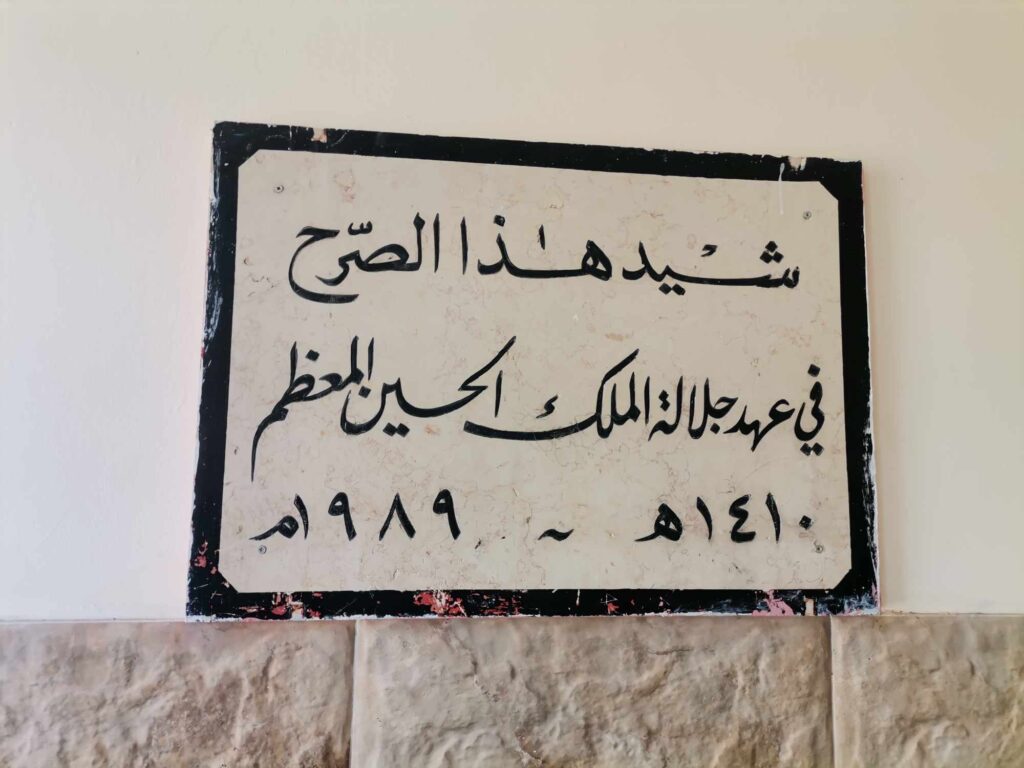 شْيد هٰذا الصّرح
في عهد جلالة الملك الحسين المعظم
١٤١٠ھ ~ ١٩٨٩م